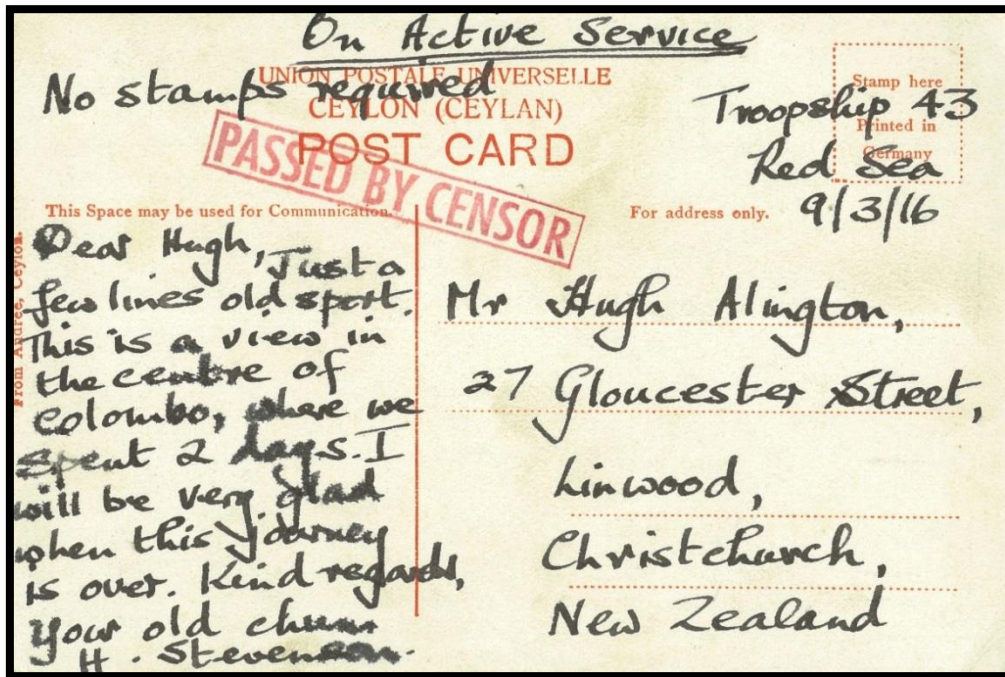 On Active Service
No stamps required
UNION POSTALE UNIVERSELLE
CEYLON (CEYLAN)
POST CARD
PASSED BY CENSOR
Stamp here
Printed in
Germany
Troopship 43
Red Sea
9/3/16
This Space may be used for Communication.
For address only.
From Andrée, Ceylon.
Dear Hugh, Just a
few lines old sport.
This is a view in
the centre of
Colombo, where we
spent 2 days. I
will be very glad
when this journey
is over. Kind regards,
your old chum
H. Stevenson.
Mr Hugh Alington,
27 Gloucester Street,
Linwood,
Christchurch,
New Zealand